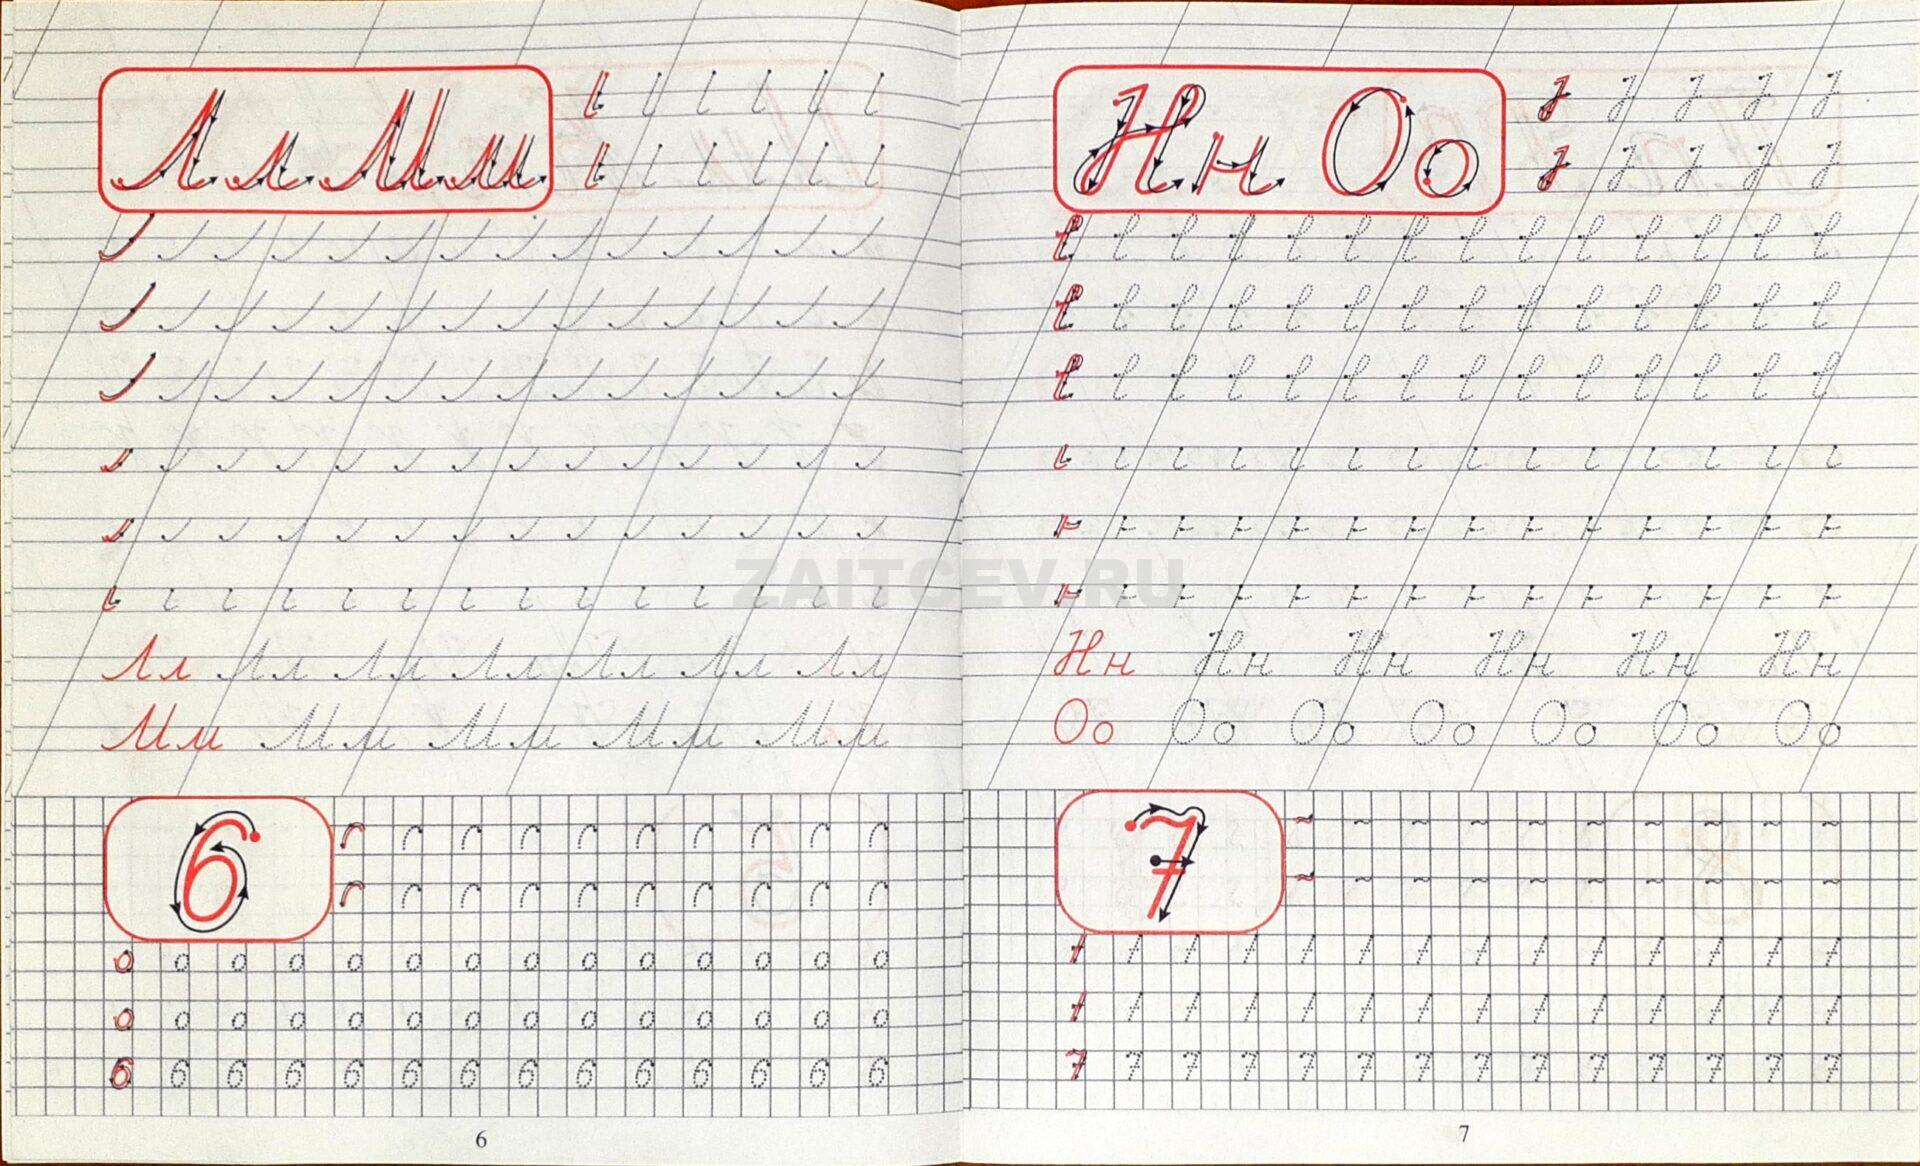 Лл Мм
Лл Лл Лл Лл Лл Лл Лл
Мм Мм Мм Мм Мм
6
6 6 6 6 6 6 6 6 6 6 6 6 6 6
6
Нн Оо
Нн Нн Нн Нн Нн Нн
Оо Оо Оо Оо Оо Оо Оо
7
7 7 7 7 7 7 7 7 7 7 7 7 7 7
7
ZAITCEV.RU